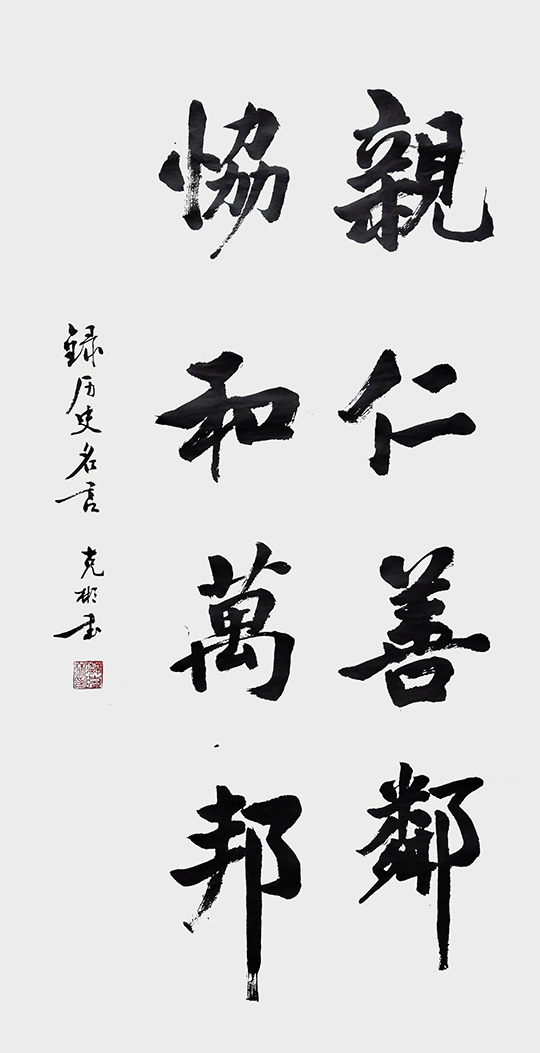 親仁善鄰
恊和萬邦
録历史名言 克彬书